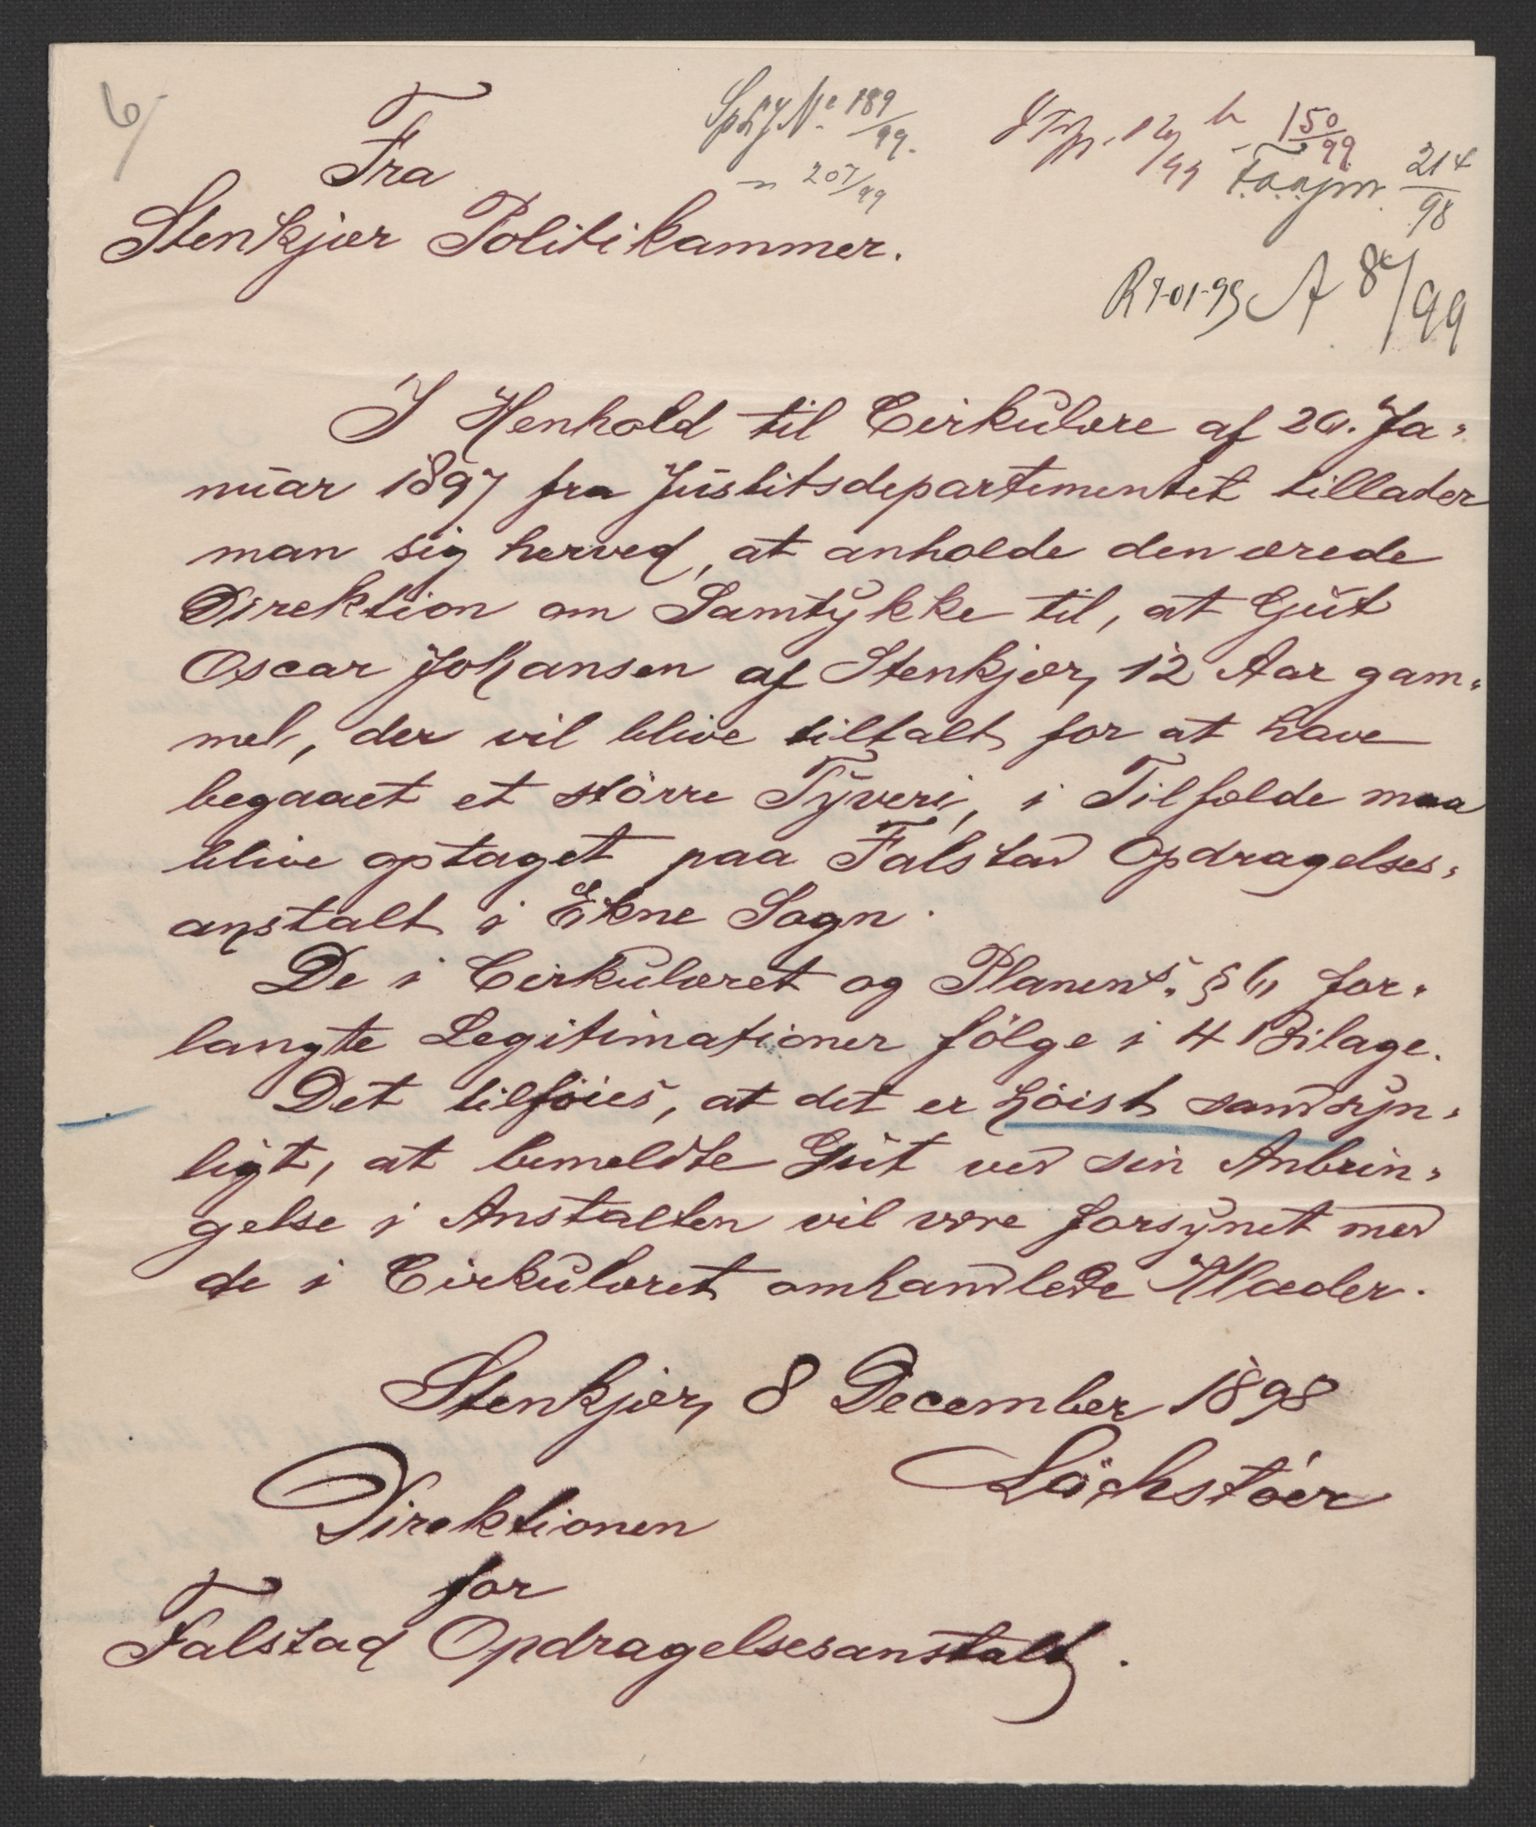 6/
Fra
Stenkjær Politikammer.
189/99.
" 207/99
150/99
214/98
R 7-01-99 A 8/99
I Henhold til Cirkulære af 26. Ja-
nuar 1897 fra Justitsdepartementet tillader
man sig herved, at anholde den ærede
Direktion om Samtykke til, at Gut
Oscar Johansen af Stenkjær, 12 Aar gam-
mel, der vil blive tiltalt for at have
begaaet et større Tyveri, i Tilfælde maa
blive optaget paa Falstad Opdragelses-
anstalt i Ekne Sogn.
De i Cirkulæret og Planens § 6 for-
langte Legitimationer følge i 4 Bilage.
Det tilføies, at det er høist sandsyn-
ligt, at bemeldte Gut ved sin Anbrin-
gelse i Anstalten vil være forsynet med
de i Cirkulæret omhandlede Klæder.
Stenkjær, 8 December 1898
Löchstöer
Direktionen
for
Falstad Opdragelsesanstalt.